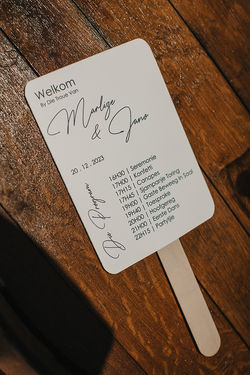 Welkom
By Die Troue Van
Marlize
& Jano
20 . 12 . 2023
Die Program
16H30 | Seremonie
17H00 | Konfetti
17H15 | Canapes
17H45 | Sjampanje Toring
19H00 | Gaste Beweeg In Saal
19H40 | Toesprake
20H00 | Hoofgereg
21H00 | Eerste Dans
22H15 | Partytjie